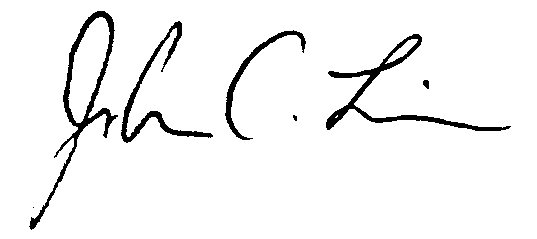 John C. Li